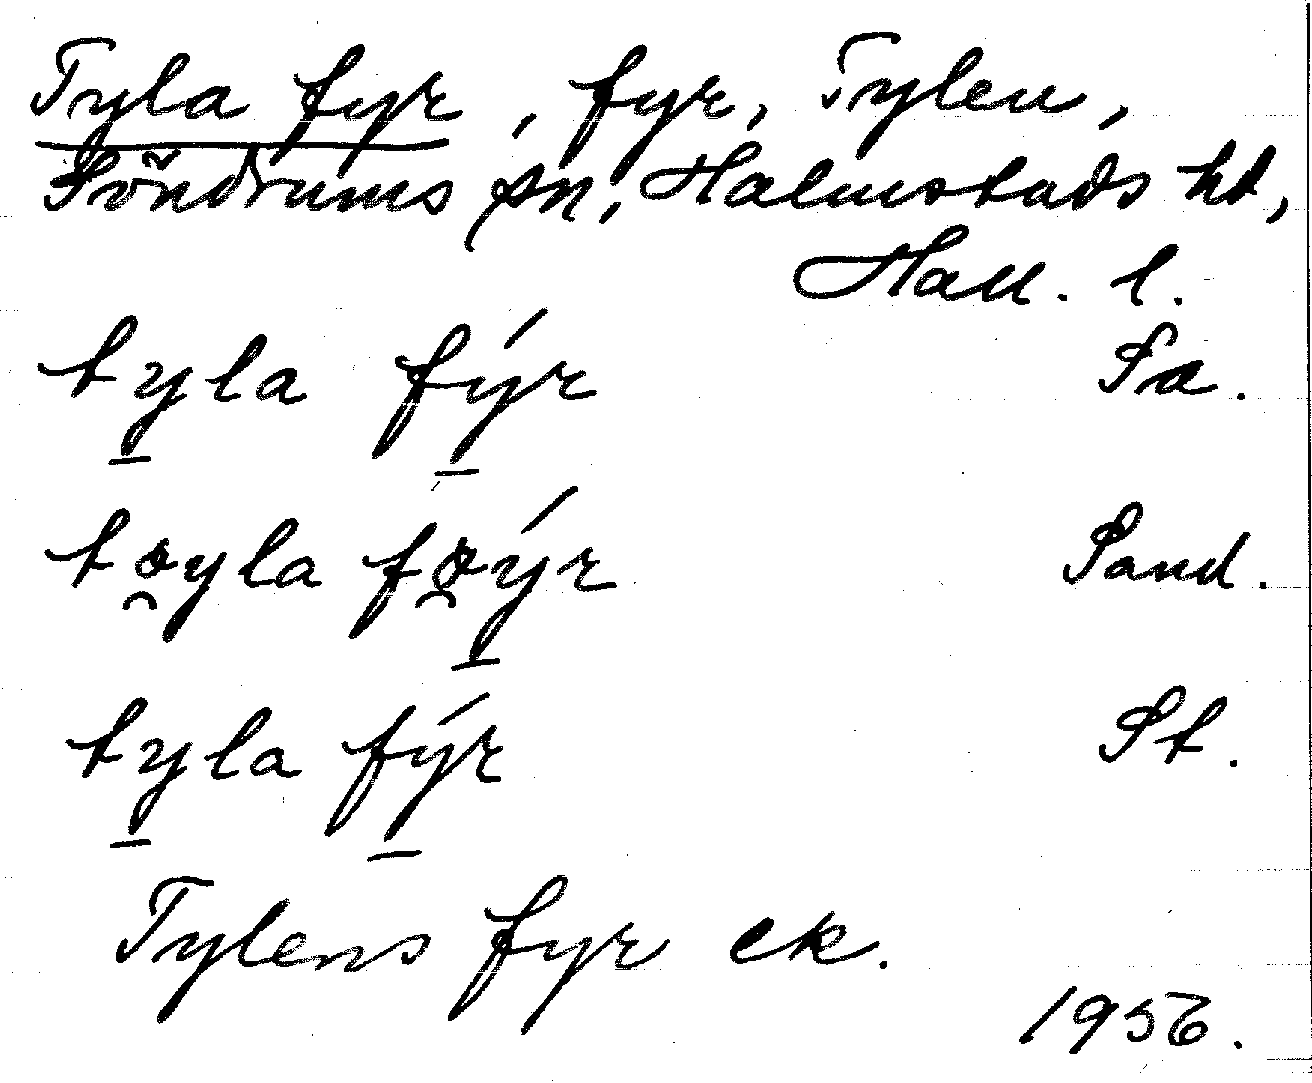 Tyla fyr, fyr, Tylen,
Söndrums sn, Halmstads hd,
Hall. l.
ty̲la fý̲r Sa.
tø̯yla fø̯ý̲r Sand.
ty̲la fý̲r St.
Tylens fyr ek.
1956.